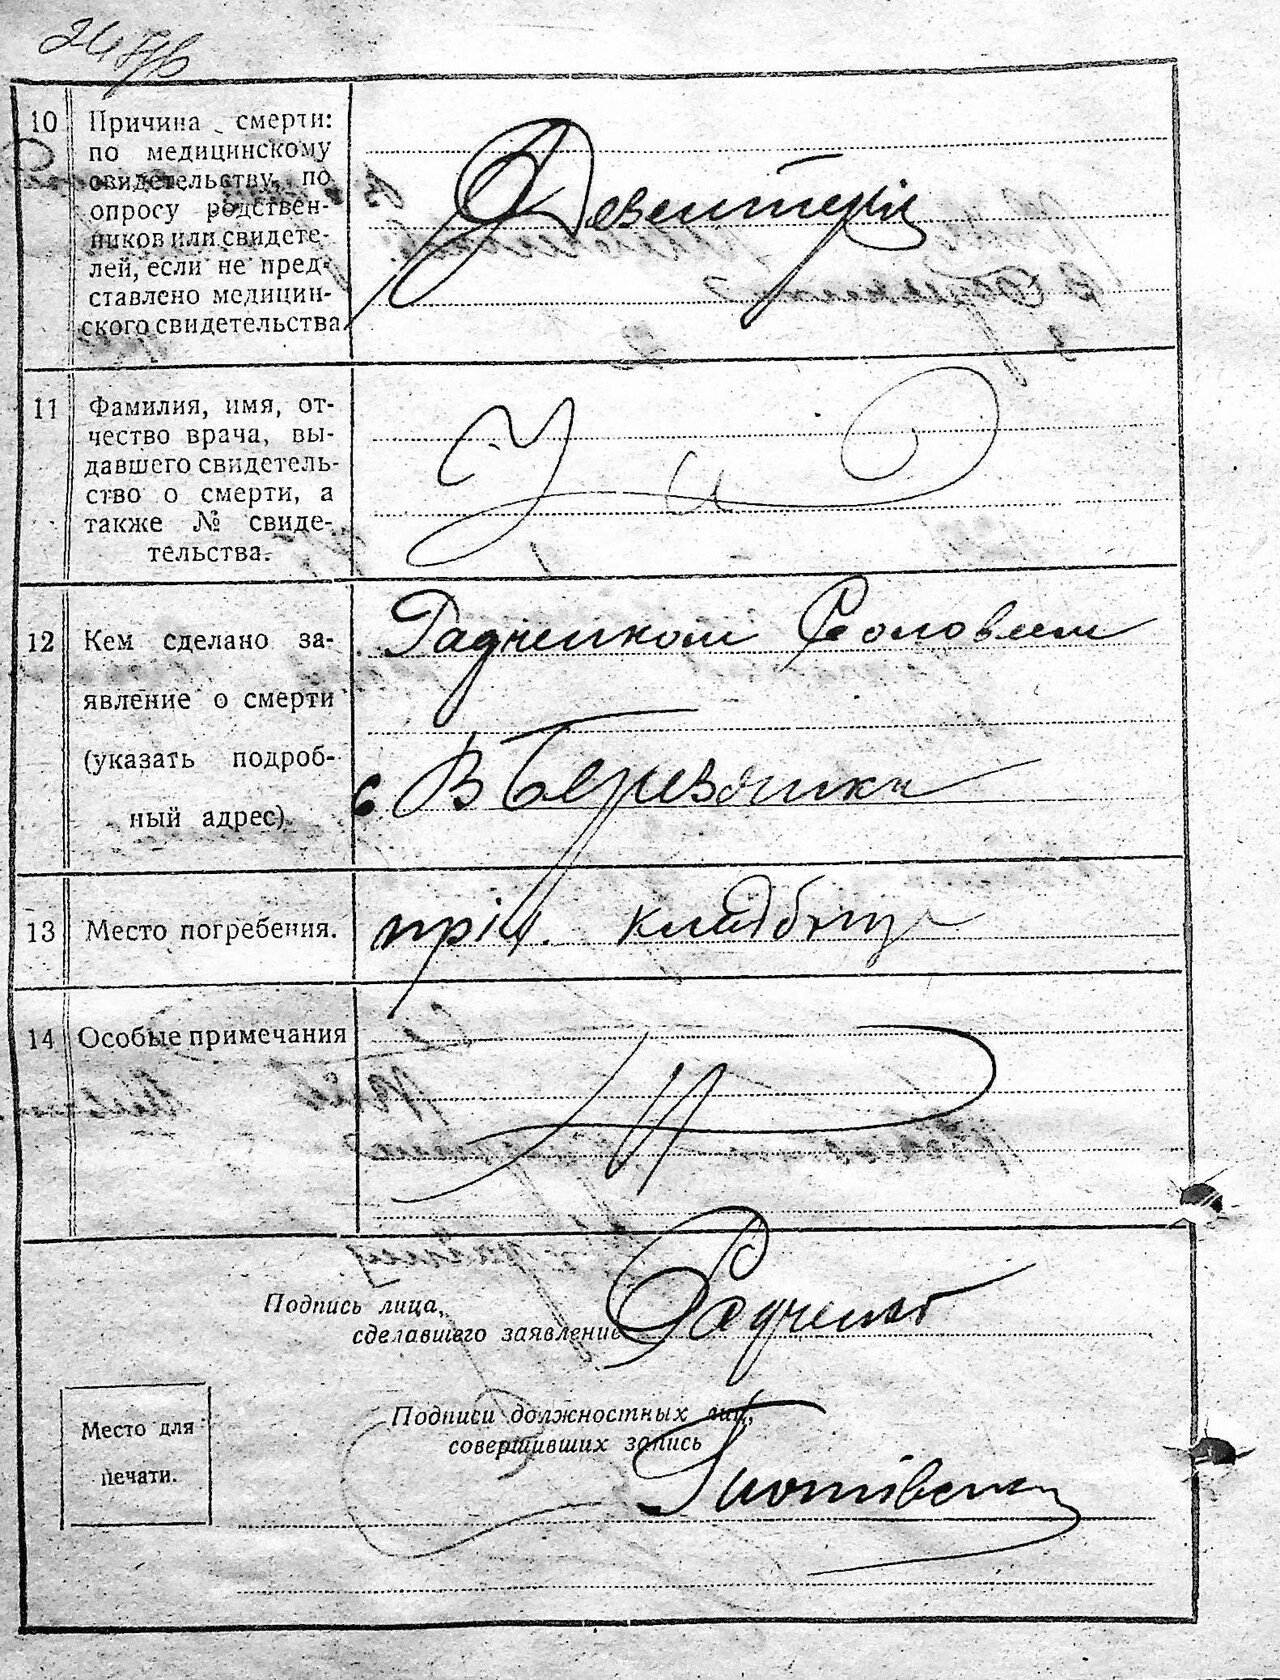 10 Причина смерти:
по медицинскому
свидетельству, по
опросу родствен-
ников или свидете-
лей, если не пред-
ставлено медицин-
ского свидетельства
Девентерія
11 Фамилия, имя, от-
чество врача, вы-
давшего свидетель-
ство о смерти, а
также № свиде-
тельства.
12 Кем сделано за-
явление о смерти
(указать подроб-
ный адрес).
Радченком Соловеем
с В Березянки
13 Место погребения.
кладбище
14 Особые примечания
Подпись лица,
сделавшего заявление
Радченко
Подписи должностных лиц,
совершивших запись
Место для
печати.